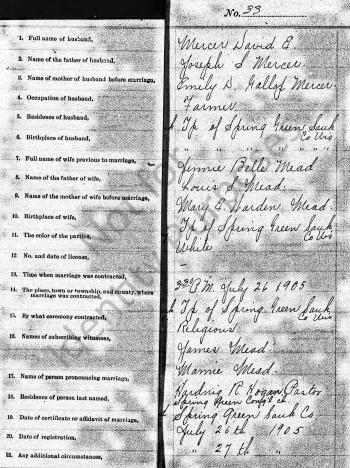 No. 33
1. Full name of husband, Mercer David E.
2. Name of the father of husband, Joseph S Mercer
3. Name of mother of husband before marriage, Emily D. Gallop Mercer
4. Occupation of husband, Farmer
5. Residence of husband, Tp of Spring Green Sauk Co Wis
6. Birthplace of husband, " " " " " " "
7. Full name of wife previous to marriage, Jennie Belle Mead
8. Name of the father of wife, Louis S. Mead.
9. Name of the mother of wife before marriage, Mary E. Warden Mead.
10. Birthplace of wife, Tp of Spring Green Sauk Co Wis
11. The color of the parties, White
12. No. and date of license,
13. Time when marriage was contracted, P.M. July 26 1905
14. The place, town or township, and county, where marriage was contracted, Tp of Spring Green Sauk Co Wis
15. By what ceremony contracted, Religious
16. Names of subscribing witnesses, James Mead.
Mamie Mead.
17. Name of person pronouncing marriage, Harding R. Hogan Pastor
18. Residence of person last named, Spring Green Cong'l Ch
19. Date of certificate or affidavit of marriage, Spring Green Sauk Co
20. Date of registration, July 26th 1905
21. Any additional circumstances, " 27th "